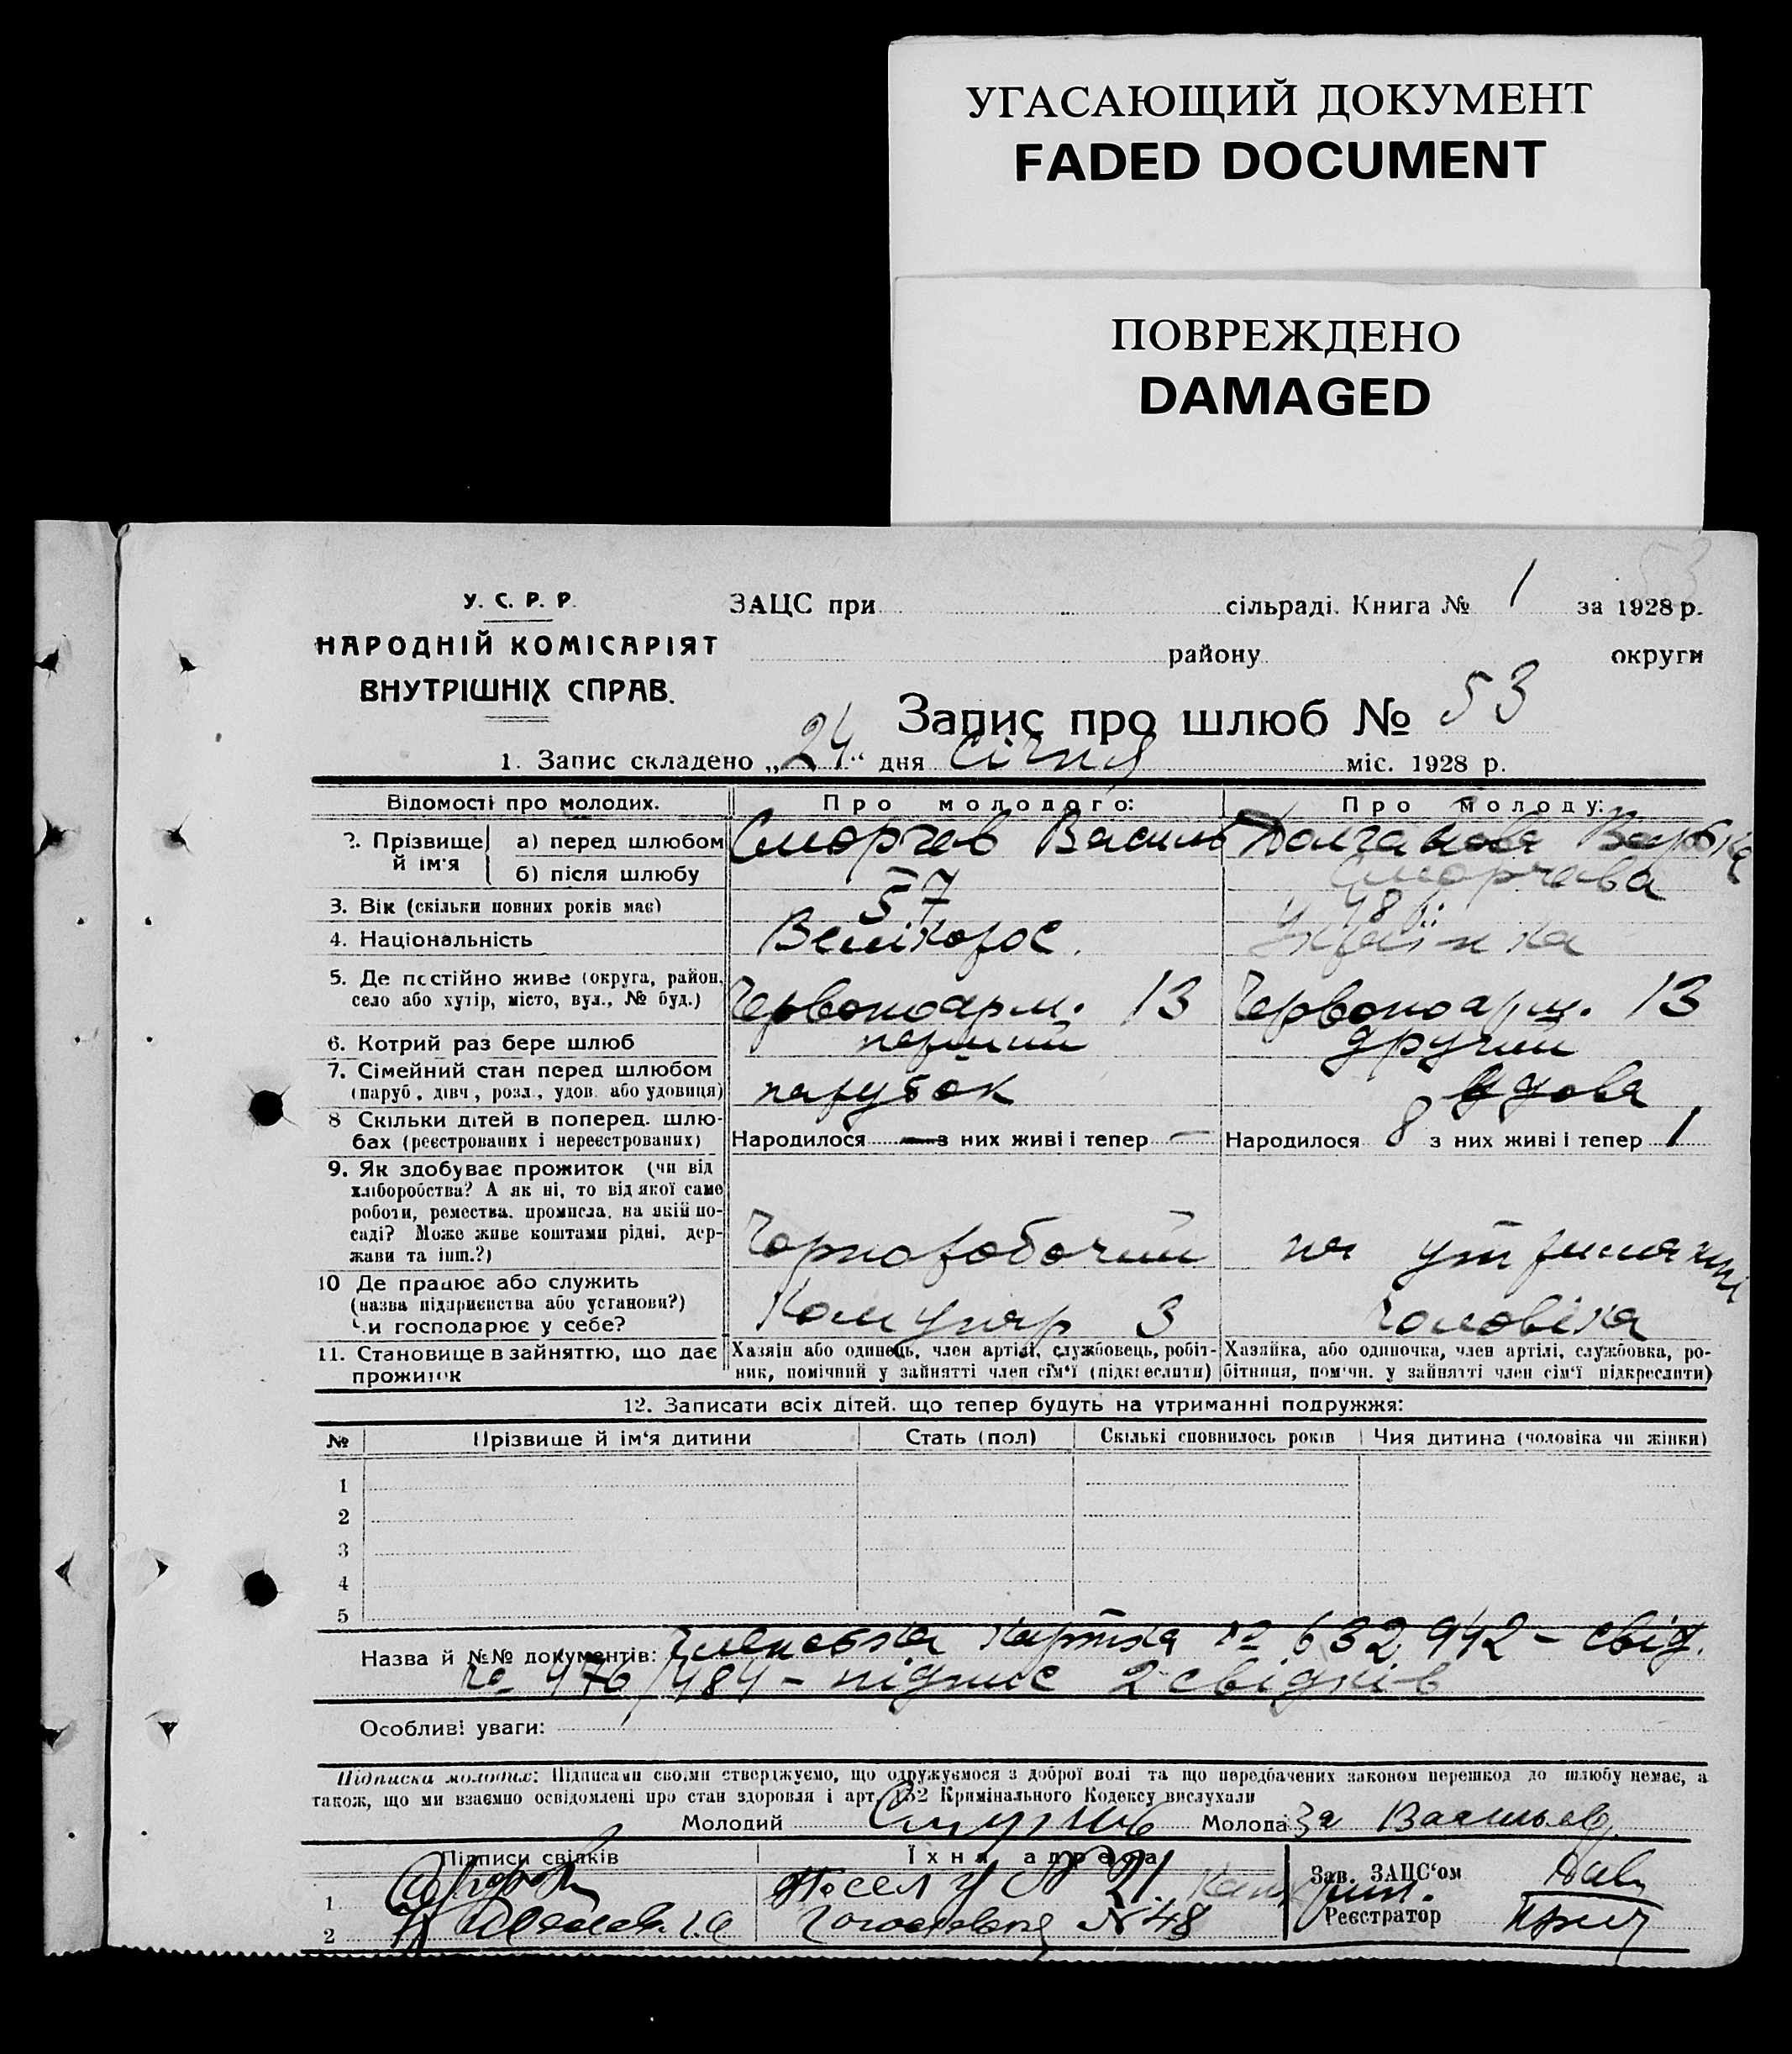 УГАСАЮЩИЙ ДОКУМЕНТ
FADED DOCUMENT
ПОВРЕЖДЕНО
DAMAGED
53
У. С. Р. Р.
НАРОДНІЙ КОМІСАРІЯТ
ВНУТРІШНІХ СПРАВ.
ЗАЦС при сільраді. Книга № 1 за 1928 р.
району округи
Запис про шлюб № 53
1. Запис складено „24“ дня Січня міс. 1928 р.
Відомості про молодих. Про молодого: Про молоду:
2. Прізвище й ім'я а) перед шлюбом Сморчев Василь
б) після шлюбу Сморчева
3. Вік (скільки повних років має) 57 48 р.
4. Національність Велікорос. Українка
5. Де постійно живе (округа, район, село або хутір, місто, вул., № буд.) Червоноарм. 13 Червоноарм. 13
6. Котрий раз бере шлюб перший другий
7. Сімейний стан перед шлюбом (паруб., дівч., розл., удов. або удовиця) парубок вдова
8 Скільки дітей в поперед. шлюбах (реєстрованих і нереєстрованих) Народилося — з них живі і тепер — Народилося 8 з них живі і тепер 1
9. Як здобуває прожиток (чи від хліборобства? А як ні, то від якої саме роботи, ремества, промисла, на якій посаді? Може живе коштами рідні, держави та інш.?) Чорноробочий на утриманні
10 Де працює або служить (назва підприємства або установи?) Чи господарює у себе? Комунар 3 чоловіка
11. Становище в зайняттю, що дає прожиток Хазяїн або одинець, член артілі, службовець, робітник, помічний у зайнятті член сім'ї (підкреслити) Хазяйка, або одиночка, член артілі, службовка, робітниця, помічн. у зайнятті член сім'ї підкреслити)
12. Записати всіх дітей, що тепер будуть на утриманні подружжя:
№ Прізвище й ім'я дитини Стать (пол) Скількі сповнилось років Чия дитина (чоловіка чи жінки)
1
2
3
4
5
Назва й №№ документів: Членська картка № 632942 – свід.
№ 976/484 – підпис 2 свідків
Особливі уваги:
Підписка молодих: Підписами своїми стверджуємо, що одружуємося з доброї волі та що передбачених законом перешкод до шлюбу немає, а
також, що ми взаємно освідомлені про стан здоровля і арт. 152 Кримінального Кодексу вислухали
Молодий Молода За
Підписи свідків Їхня адреса Зав. ЗАЦС'ом
1 21
2 № 48 Реєстратор